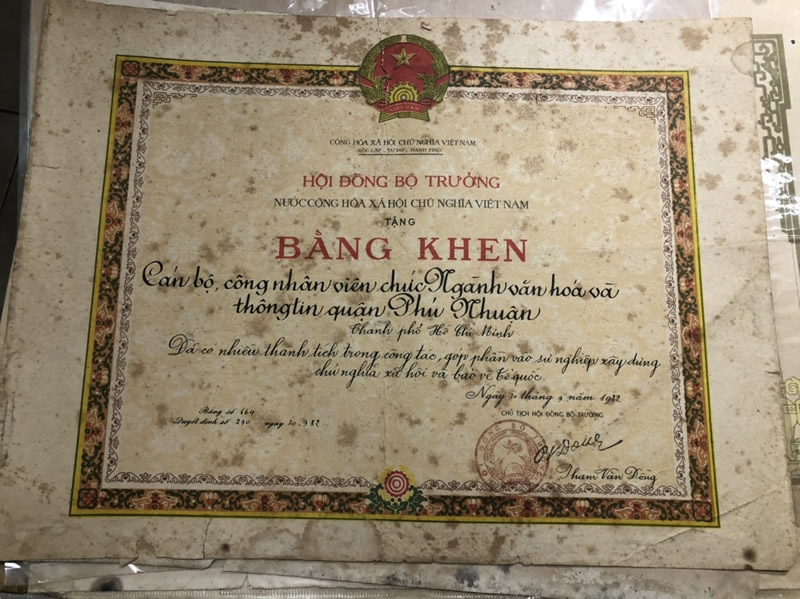 VIỆT NAM
CỘNG HÒA XÃ HỘI CHỦ NGHĨA VIỆT NAM
ĐỘC LẬP _ TỰ DO _ HẠNH PHÚC
HỘI ĐỒNG BỘ TRƯỞNG
NƯỚC CỘNG HÒA XÃ HỘI CHỦ NGHĨA VIỆT NAM
TẶNG
BẰNG KHEN
Cán bộ, công nhân viên chức Ngành văn hoá và
thông tin quận Phú Nhuận
Thành phố Hồ Chí Minh
Đã có nhiều thành tích trong công tác, góp phần vào sự nghiệp xây dựng
chủ nghĩa xã hội và bảo vệ Tổ quốc.
Ngày 30 tháng 9 năm 1982
CHỦ TỊCH HỘI ĐỒNG BỘ TRƯỞNG
Bảng số 664
Quyết định số 290 ngày 30.9.82
Phạm Văn Đồng